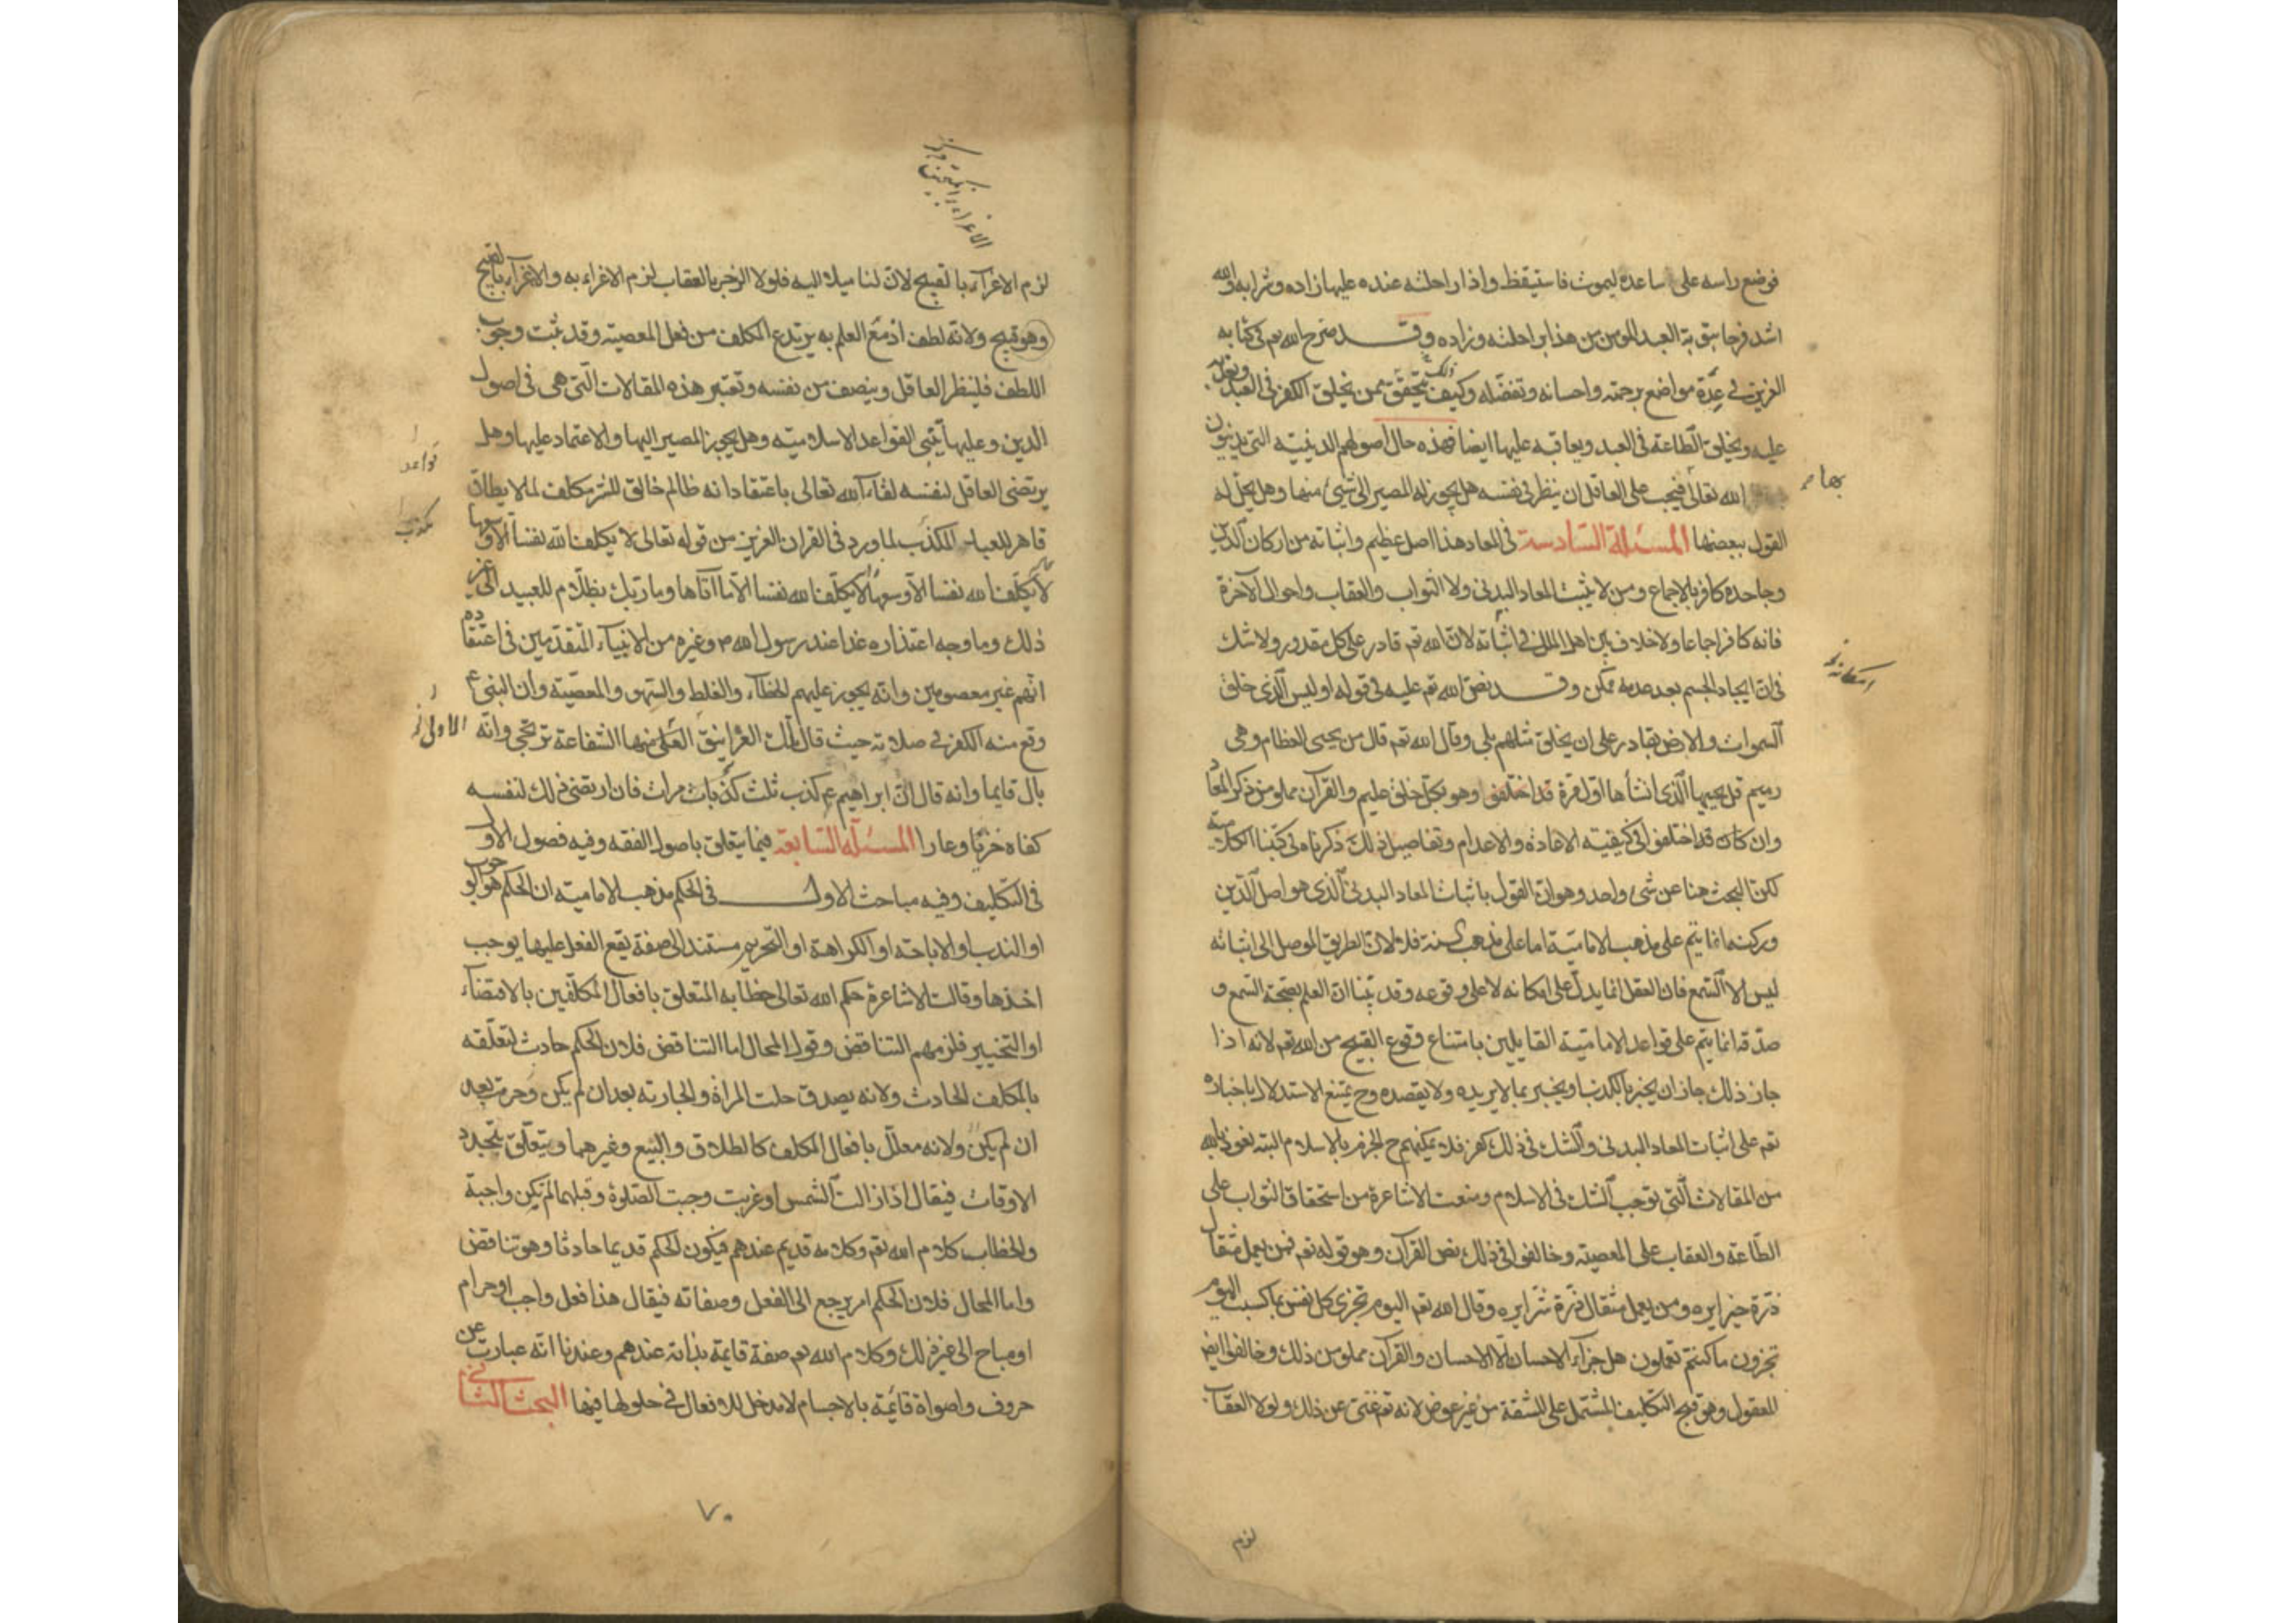 فوضع راسه على ساعده ليموت فاستيقظ واذا راحلته عنده عليها زاده وشرابه والله
اشد فرحا بتوبة العبد المومن من هذا براحلته وزاده وقد صرح الله تعم فى كتابه
العزيز فى عدة مواضع برحمته واحسانه وتفضله وكيف يتحقق ذلك ممن يخلق الكفر فى العبد ويعذبه
عليه ويخلق الطاعة فى العبد ويعاقبه عليها ايضا فهذه حال اصولهم الدينية التى يدينون
بها
الله تعالى فيجب على العاقل ان ينظر فى نفسه هل يجوز له المصير الى شئ منها وهل يحل له
القول ببعضها المسئلة السادسة فى المعاد هذا اصل عظيم واثباته من اركان الدين
وجاحده كافر بالاجماع ومن لا يثبت المعاد البدنى ولا الثواب والعقاب واحوال الآخرة
فانه كافر اجماعا ولا خلاف بين اهل الملل فى اثباته لان الله تعم قادر على كل مقدور ولا شك
فى ان ايجاد الجسم بعد عدمه ممكن وقد نص الله تعم عليه فى قوله اوليس الذى خلق
السموات والارض بقادر على ان يخلق مثلهم بلى وقال الله تعم قال من يحيى العظام وهى
رميم قل يحييها الذى انشأها اول مرة وهو بكل خلق عليم والقرآن مملو من ذكر المعاد
وان كان قد اختلفوا فى كيفية الاعادة والاعدام وتفاصيل ذلك ذكرناه فى كتبنا الكلامية
لكن البحث هنا عن شئ واحد وهو ان القول باثبات المعاد البدنى الذى هو اصل الدين
وركنه انما يتم على مذهب الامامية اما على مذهب السنة فلا لان الطريق الموصل الى اثباته
ليس الا السمع فان العقل انما يدل على امكانه لا على وقوعه وقد بينا ان العلم بصحة السمع و
صدقه انما يتم على قواعد الامامية القايلين بامتناع وقوع القبيح من الله تعم لانه اذا
جاز ذلك جاز ان يخبر بالكذب او يخبر بما لا يريده ولا يقصده وح يمتنع الاستدلال باخباره
تعم على اثبات المعاد البدنى والشك فى ذلك كفر فلا يمكنهم ح الجزم بالاسلام البتة نعوذ بالله
من المقالات التى توجب الشك فى الاسلام ومنعت الاشاعرة من استحقاق الثواب على
الطاعة والعقاب على المعصية وخالفوا فى ذلك نص القرآن وهو قوله تعم فمن يعمل مثقال
ذرة خيرا يره ومن يعمل مثقال ذرة شرا يره وقال الله تعم اليوم تجزى كل نفس بما كسبت اليوم
تجزون ما كنتم تعملون هل جزآء الاحسان الا الاحسان والقرآن مملو من ذلك وخالفوا ايض
المعقول وهو قبح التكليف المشتمل على المشقة من غير عوض لانه تعم غنى عن ذلك ولولا العقاب
لزم
لزم الاغرآء بالقبيح لان لنا ميلا اليه فلولا الزجر بالعقاب لزم الاغراء به والاغرآء بالقبيح
وهو قبيح ولانه لطف اذ مع العلم به يرتدع المكلف من فعل المعصية وقد ثبت وجوب
اللطف فلينظر العاقل وينصف من نفسه وتعتبر هذه المقالات التى هى فى اصول
الدين وعليها تبنى القواعد الاسلامية وهل يجوز المصير اليها والاعتماد عليها وهل
قواعد
يرتضى العاقل لنفسه لقاء الله تعالى باعتقاد انه ظالم خالق للشر مكلف لما لا يطاق
قاهر للعباد المكذب لما ورد فى القران العزيز من قوله تعالى لا يكلف الله نفسا الا وسعها
مكذب
لا يكلف الله نفسا الا وسعها لا يكلف الله نفسا الا ما آتاها وما ربك بظلام للعبيد الى غير
ذلك وما وجه اعتذاره غدا عند رسول الله ص وغيره من الانبيآء المتقدمين فى اعتقاده
انهم غير معصومين وانه يجوز عليهم الخطاء والغلط والسهو والمعصية وان النبى ع
وقع منه الكفر فى صلاته حيث قال تلك الغرانيق العلى منها الشفاعة ترتجى وانه
الاولى
بال قايما وانه قال ان ابراهيم ع كذب ثلث كذبات مرات فان ارتضى ذلك لنفسه
كفاه خزيا وعارا المسئلة السابعة فيما يتعلق باصول الفقه وفيه فصول الاول
فى التكليف وفيه مباحث الاول فى الحكم مذهب الامامية ان الحكم هو الوجوب
او الندب او الاباحة او الكراهة او التحريم مستند الى صفة يقع الفعل عليها يوجب
اخذها وقالت الاشاعرة حكم الله تعالى خطابه المتعلق بافعال المكلفين بالاقتضاء
او التخيير فلزمهم التناقض وقول المحال اما التناقض فلان الحكم حادث لتعلقه
بالمكلف الحادث ولانه يصدق حلت المراة والجارية بعد ان لم يكن وحرمت بعد
ان لم يكن ولانه معلل بافعال المكلف كالطلاق والبيع وغيرهما ويتعلق بتجدد
الاوقات فيقال اذا زالت الشمس او غربت وجبت الصلوة وقبلهما لم يكن واجبة
والخطاب كلام الله تعم وكلامه قديم عندهم فيكون الحكم قديما حادثا وهو تناقض
واما المحال فلان الحكم امر يرجع الى الفعل وصفاته فيقال هذا فعل واجب او حرام
او مباح الى غير ذلك وكلام الله تعم صفة قايمة بذاته عندهم وعندنا انه عبارت عن
حروف واصواة قائمة بالاجسام لا مدخل للافعال فى حلولها فيها البحث الثانى
٧٠